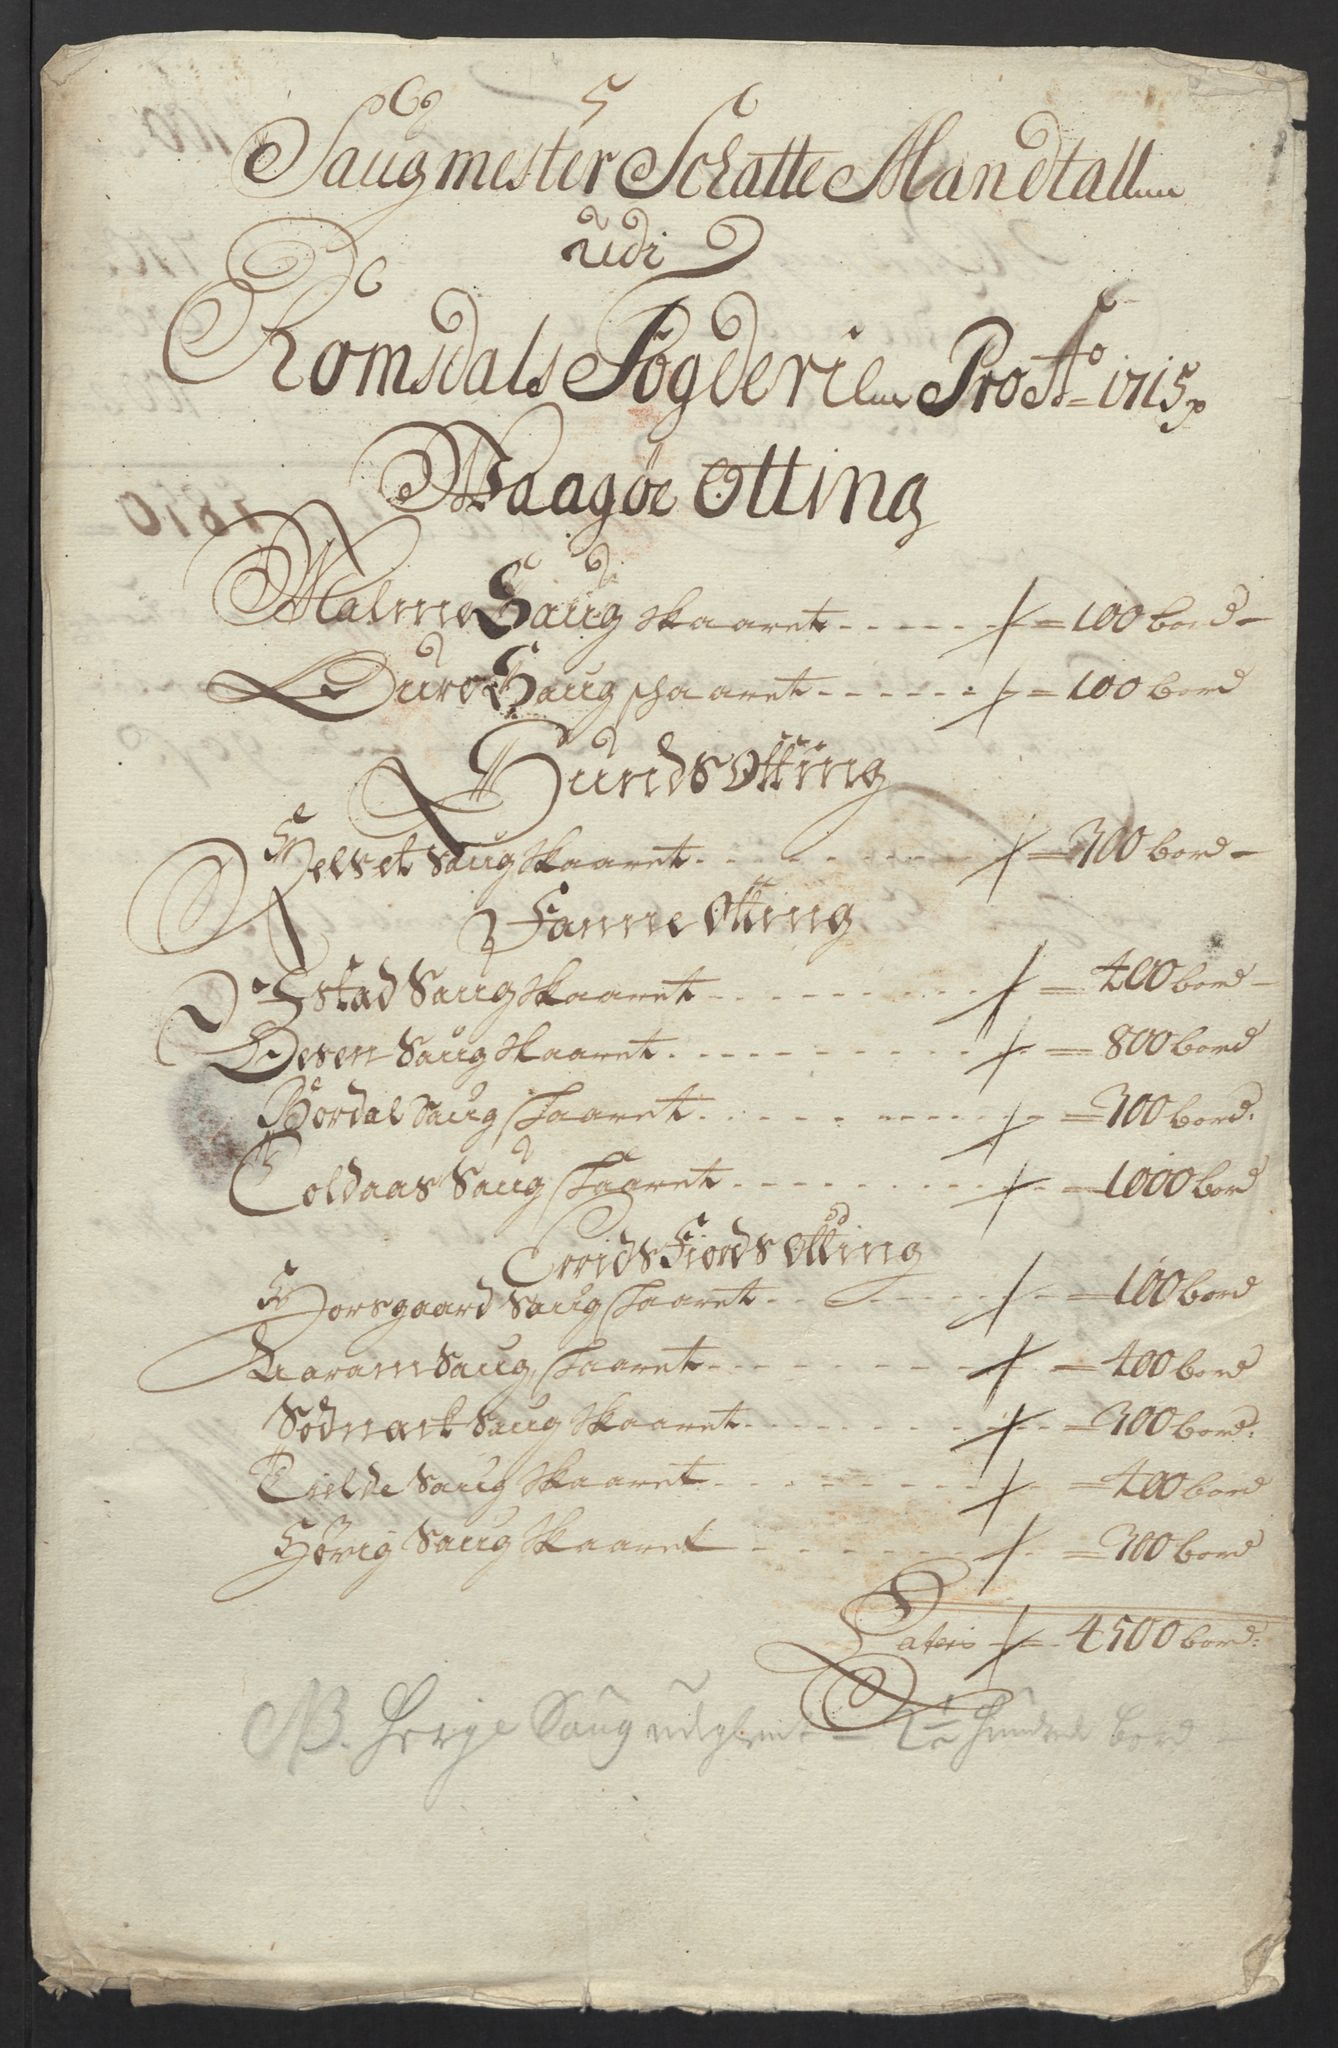 Saugmester Schatte Mandtall
udi
Romsdals Fogderie Pro Ao 1715
Waagøe Otting
Malme Saug skaaret - - - - - - / = 100 bord -
Eure Saug skaaret - - - - - - / = 100 bord
Sunds Otting
Helset Saug skaaret - - - - - - / = 300 bord -
Fanne Otting
Istad Saug skaaret - - - - - - / = 400 bord -
Desen Saug skaaret - - - - - - / = 800 bord
Bordal Saug skaaret - - - - - - / = 300 bord:
Toldaas Saug skaaret - - - - - - / = 1000 bord
Erids Fiords Otting
Horsgaard Saug skaaret - - - - - - / = 100 bord
Aaram Saug skaaret - - - - - - / = 400 bord
Sødnack Saug skaaret - - - - - - / = 300 bord:
Tielde Saug skaaret - - - - - - / = 400 bord
Hørig Saug skaaret - - - - - - / = 300 bord
Lateris / = 4500 bord:
NB. Herje Saug hundred bord